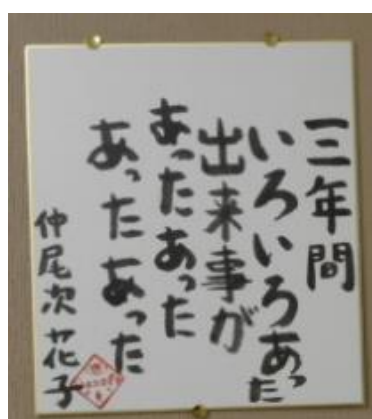 三年間
いろいろあった
出来事が
あったあった
あったあった
仲尾次花子